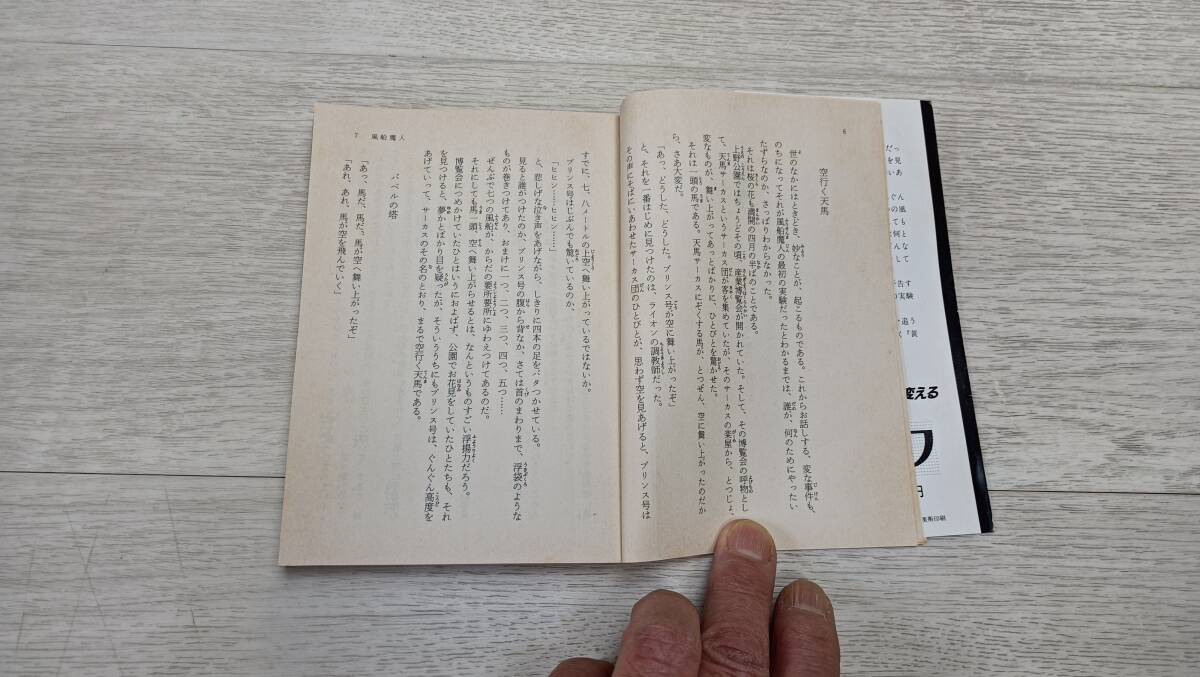 6
空行く天馬
世のなかにはときどき、妙なことが、起こるものである。これからお話しする、変な事件も、
のちになってそれが風船魔人の最初の実験だったとわかるまでは、誰が、何のためにやったい
たずらなのか、さっぱりわからなかった。
それは桜の花も満開の四月の半ばのことである。
上野公園ではちょうどその頃、産業博覧会が開かれていた。そして、その博覧会の呼物とし
て、天馬サーカスというサーカス団が客を集めていたが、そのサーカスの楽屋から、とつじょ、
変なものが、舞い上がってあっとばかりに、ひとびとを驚かせた。
それは一頭の馬である。天馬サーカスにぞくする馬が、とつぜん、空に舞い上がったのだか
ら、さあ大変だ。
「あっ、どうした、どうした。プリンス号が空に舞い上がったぞ」
と、それを一番はじめに見つけたのは、ライオンの調教師だった。
その声にそばにいあわせたサーカス団のひとびとが、思わず空を見あげると、プリンス号は
7 風船魔人
すでに、七、八メートルの上空へ舞い上がっているではないか。
プリンス号はじぶんでも驚いているのか、
「ヒヒン……ヒヒン……」
と、悲しげな泣き声をあげながら、しきりに四本の足をバタつかせている。
見ると誰がつけたのか、プリンス号の腹から背なか、さては首のまわりまで、浮袋のような
ものが巻きつけてあり、おまけに一つ、二つ、三つ、四つ、五つ……
ぜんぶで七つの風船が、からだの要所要所にゆわえつけてあるのだ。
それにしても馬一頭、空へ舞い上がらせるとは、なんというものすごい浮揚力だろう。
博覧会につめかけていたひとはいうにおよばず、公園でお花見をしていたひとたちも、それ
を見つけると、夢かとばかり目を疑ったが、そういううちにもプリンス号は、ぐんぐん高度を
あげていって、サーカスのその名のとおり、まるで空行く天馬である。
バベルの塔
「あっ、馬だ、馬だ、馬が空へ舞い上がったぞ」
「あれ、あれ、馬が空を飛んでいく」
変える
円
美術印刷